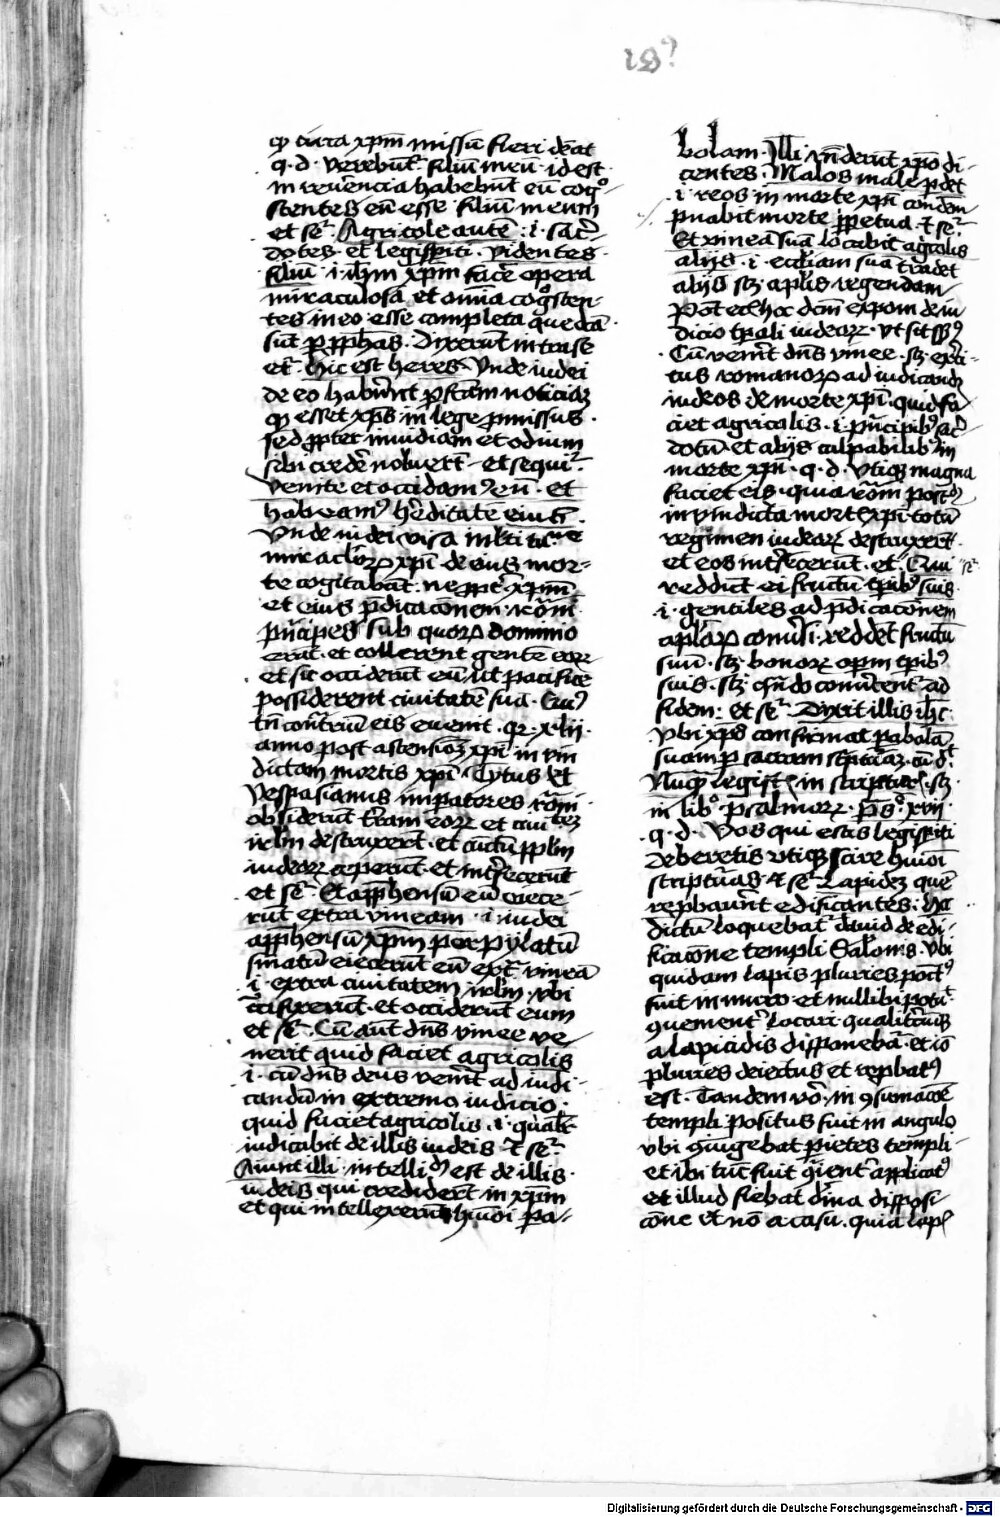 18?
qd circa xpm missu fieri debeat
q. d. verebunt filiu meu id est
in reverencia habebunt eu cogno-
scentes eu esse filium meum
et se. Agricole aute .i. sacer
dotes et legisperiti videntes
filiu .i. ihm xpm facere opera
miraculosa et omnia cognoscen-
tes in eo esse completa que dca
sut p pphas. Dixerunt intra se
etc. hic est heres. Unde iudei
de eo habuerut pfctam noticiaz
qd esset xps in lege pmissus
sed ppter invidiam et odium
sibi credere noluerut et sequit
venite et occidamus eu et
habeamus hereditate eius
Unde iudei visa multitudine
miraclorz xpi de eius mor-
te cogitabat ne ppter xpm
et eius pdicacionem roni
principes sub quorz dominio
erat et tollerent gente eorz
et sic occiderut eu ut pacifice
possiderent civitate sua. Cuius
tn contrariu eis evenit qr xlii
anno post ascensioz xpi in vin
dictam mortis xpi Tytus et
Vespasianus imperatores romi
obsiderut terram eorz et civitatez
irlm destruxerut et cuctu pplm
iudeorz ceperut et interfecerut
et se. Et apphensu eu eiece
rut extra vineam .i. iudei
apphensu xpm per pylatu
sniatu eiecerut eu extra vinea
.i. extra civitatem irlm ubi
crucifixerut et occiderut eum
et se. Cu aut dns vinee ve-
nerit quid faciet agricolis
.i. cu dns deus venerit ad iudi-
candu in extremo iudicio
quid faciet agricolis .i. qualr
iudicabit de illis iudeis et se.
Aiunt illi intelligendu est de illis
iudeis qui crediderut in xpm
et qui intellexerut huiusmodi pa-
bolam. Illi rnderut xpo di-
centes. Malos male perdet
.i. reos in morte xpi condem
pnabit morte ppetua et se.
Et vinea sua locabit agricolis
alijs .i. ecclliam sua tradet
alijs scz aplis regendam
Post ec hoc dom expom de iu
dicio tpali iudeorz ut sit sensus
Cu venerit dns vinee scz exerci-
tus romanorz ad iudicandz
iudeos de morte xpi quid fa
ciet agricolis .i. principibus sacer
dotu et alijs culpabilibus in
morte xpi q. d. Utiqz magna
faciet eis quia romi postea
in vindicta mortis xpi totu
regimen iudeorz destruxerut
et eos interfecerut et. Qui
reddut ei fructu tpibus suis
.i. gentiles ad pdicacionem
aplorz conversi reddet fructu
suu scz bonorz operum tpibus
suis scz quando convertent ad
fidem et se. Dixit illis ihc
Ubi xps confirmat pabola
suam p sacram scpturaz cu dt
Nuqz legistis in scripturis scz
in libo psalmorz ps xvii
q. d. Vos qui estis legisperiti
deberetis utiqz scire huiusmodi
scripturas et se. Lapidez que
repbaverut edificantes. Hic
dictu loquebat david de edi-
ficacione templi Salonis. Ubi
quidam lapis pluries positus
fuit in muro et nullibi potuit
quenienter locari qualitercuqz
a lapicidis disponebat et io
pluries deiectus et repbatus
est. Tandem vo in qsumacone
templi positus fuit in angulo
ubi qiugebat parietes templi
et ibi tuc fuit quenienter applicatus
et illud fiebat divina disposi
cone et no a casu quia lapis